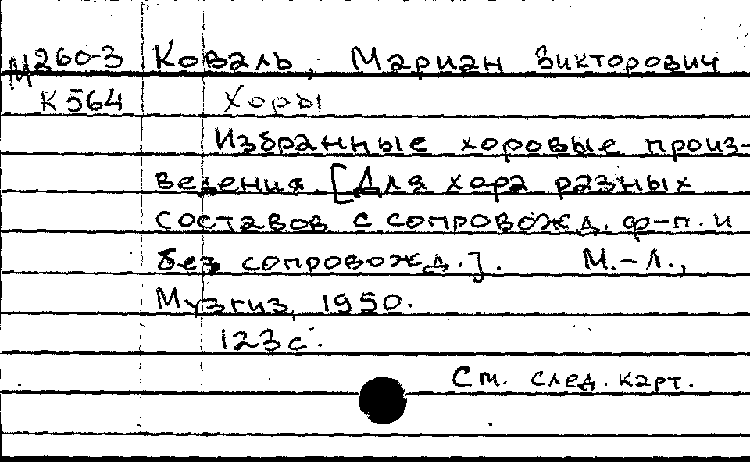 М260-3 Коваль, Мариан Викторович
К564 Хоры
Избранные хоровые произ-
ведения. [Для хора разных
составов с сопровожд. ф-п. и
без сопровожд.]. М.-Л.,
Музгиз, 1950.
123 с.
См. след. карт.